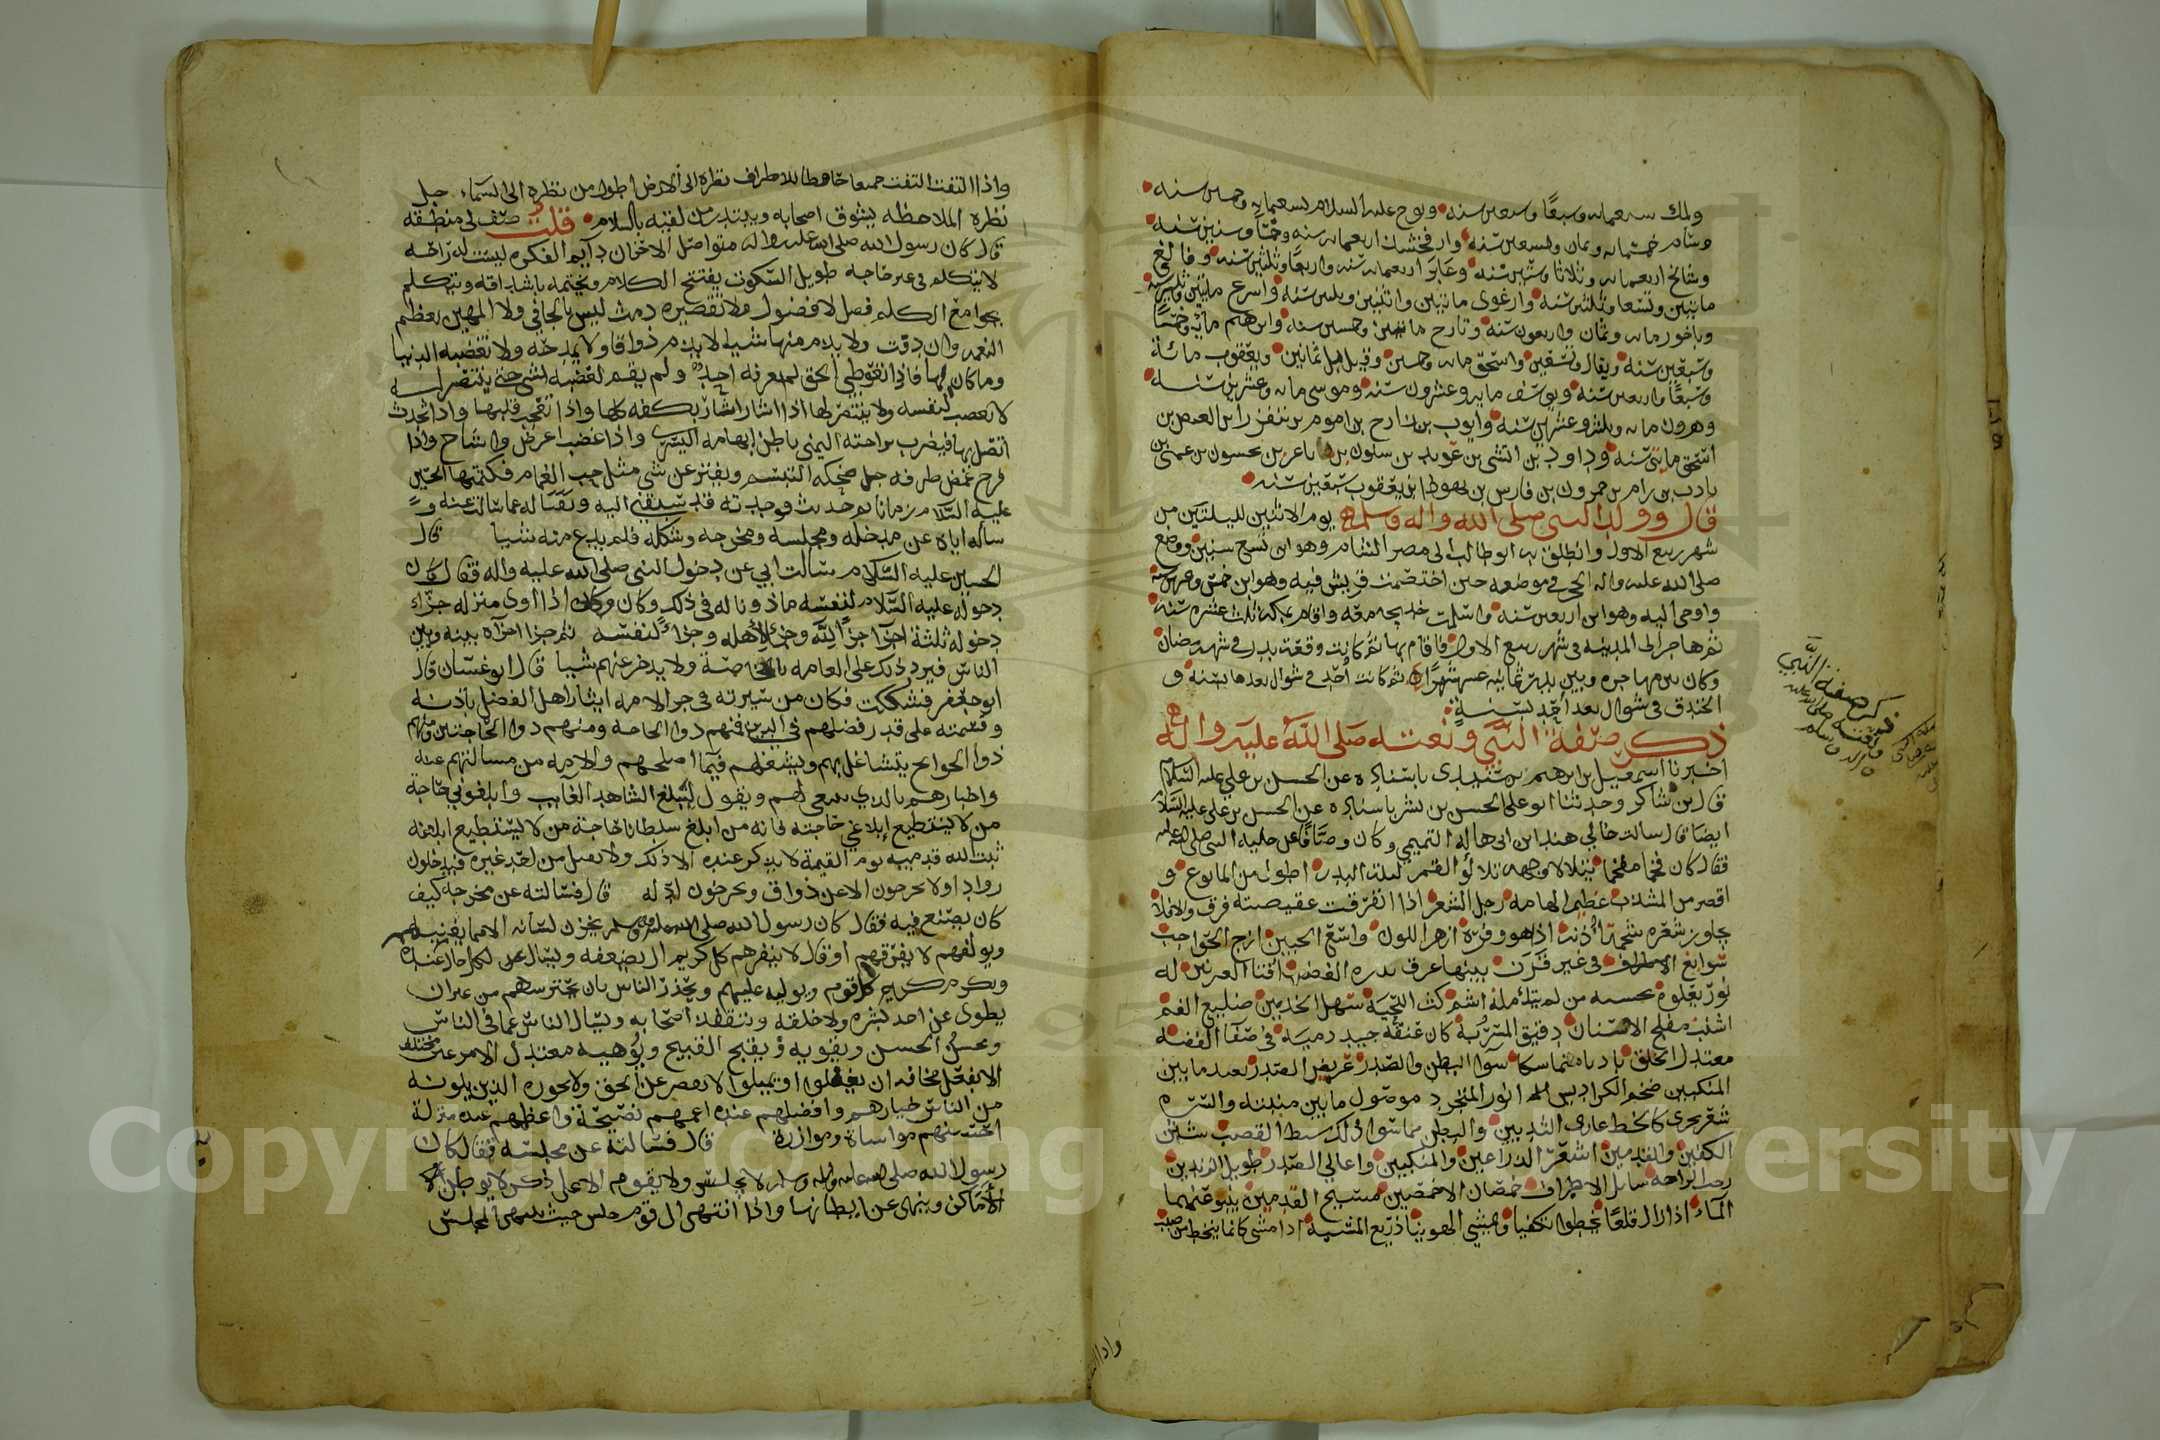 ولمك سبعمائه وسبعًا وسبعين سنه ونوح عليه السلام تسعمايه وخمسين سنه
وسام خمسمائه وثمان وتسعين سنه وارفخشد اربعمايه سنه وخمسًا وستين سنه
وشالخ اربعمايه وثلاثا وستين سنه وعابر اربعمايه سنه واربعًا وثلثين سنه وفالغ
مايتين وتسعا وثلثين سنه وارغوى مايتين واثنتين وثلثين سنه واسرع مايتين وثلثين سنه
وناخور مايه وثمان واربعون سنه وتارح مايتين وخمسين سنه وابرهيم مايه وخمسًا
وسبعين سنه ويقال وتسعين واسحق مايه وخمسين وقيل بل ثمانين ويعقوب مائة
وسبعًا واربعين سنه ويوسف مايه وعشرون سنه وموسى مايه وعشرين سنه
وهرون مايه وثلث وعشرين سنه وايوب بن زارح بن اموص بن العيص بن
اسحق مايتي سنه وداود بن ايشى بن عوبد بن سلون بن باعز بن نحسون بن عمى بن
يادب بن رام بن حصرون بن فارس بن يهوظا ابن يعقوب سبعين سنه
قال وولد النبي صلى الله واله وسلم يوم الاثنين لليلتين من
شهر ربيع الاول وانطلق به ابو طالب الى مصر الشام وهو ابن تسع سنين ووضع
صلى الله عليه واله الحجر في موضعه حين اختصمت قريش فيه وهو ابن خمس وعشرين سنه
واوحى اليه وهو ابن اربعين سنه واسلمت خديجه معه واقام بمكه ثلث عشره سنه
ثم هاجر الى المدينه فى شهر ربيع الاول فاقام بها ثم كانت وقعة بدر في شهر رمضان
وكان بين مهاجره وبين بدر ثمانيه عشر شهرًا ثم كانت أحد في شوال بعدها بسنه و
الخندق فى شوال بعد أحد بسنة
ذكر صفة النبي ونعته صلى الله عليه واله
اخبرنا اسمعيل بن ابرهيم بن شنبدى باسناده عن الحسن بن علي عليه السلام
قال بن شاكر وحدثنا ابو على الحسن بن بشر باسناده عن الحسن بن على عليه السلام
ايضا قال سالت خالي هند ابن ابى هاله التميمي وكان وصّافًا عن حليه النبي صلى الله عليه
فقال كان فخما مفخما يتلالا وجهه تلالؤ القمر ليلة البدر اطول من المربوع و
اقصر من المشذب عظيم الهامه رجل الشعر اذا انفرقت عقيصته فرق والا فلا
يجاوز شعره شحمة اُذنه اذا هو وفره ازهر اللون واسع الجبين ازج الحواجب
سوابغ في غير قرن بينهما عرق يدره الغضب اقنا العرنين له
نورٌ يعلوه يحسبه من لم يتأمله اشم كث اللحية سهل الخدين ضليع الفم
اشنب مفلج الاسنان دقيق المسربة كان عنقه جيد دمية في صفآ الفضه
معتدل الخلق بادياه متماسكا سوآ البطن والصدر عريض الصدر بعيد ما بين
المنكبين ضخم الكراديس انور المتجرد موصول ما بين منبته والسره
شعر يجرى كالخط عارى الثديين والبطن مما سوا ذلك سبط القصب شثن
الكفين والقدمين اشعر الذراعين والمنكبين واعالي الصدر طويل الزندين
رحب الراحه سائل الاطراف خمصان الاخمصين مسيح القدمين ينبو عنهما
المآء اذا زال قلعًا يخطو تكفيا ويمشي الهوينا ذريع المشية اذا مشى كانما ينحط من صبب
ذكر صفة النبي
ونعته صلى الله عليه
واله وسلم
واذا
واذا التفت التفت جميعا خافضا للاطراف نظره الى الارض اطول من نظره الى السماء جل
نظره الملاحظه يسوق اصحابه ويبتدر من لقيه بالسلام قلت صف لي منطقه
قال كان رسول الله صلى الله عليه واله متواصل الاحزان دآيم الفكره ليست له راحه
لا يتكلم في غير حاجه طويل السكوت يفتتح الكلام ويختتمه باشداقه ويتكلم
بجوامع الكلم فصل لا فضول ولا تقصير دمث ليس بالجافي ولا المهين يعظم
النعمه وان دقت ولا يذم منها شيا لا يذم ذواقا ولا يمدحه ولا تغضبه الدنيا
وما كان لها فاذا تعوطي الحق لم يعرفه احد ولم يقم لغضبه لشي حتى ينتصر له
لا يغضب لنفسه ولا ينتصر لها اذا اشار اشار بكفه كلها واذا تعجب قلبها واذا تحدث
اتصل بها فيضرب براحته اليمنى باطن ابهامه اليسرى واذا غضب اعرض واشاح واذا
فرح غض طرفه جل ضحكه التبسم ويفتر عن مثل حب الغمام فكتمتها الحسين
عليه السلام زمانا ثم حدثته فوجدته قد سبقني اليه وقد ساله عما سالته عنه و
ساله اباه عن مدخله ومجلسه ومخرجه وشكله فلم يدع منه شيا قال
الحسين عليه السلام سالت ابي عن دخول النبي صلى الله عليه واله فقال كان
دخوله عليه السلام لنفسه ماذونا له في ذلك وكان اذا اوى منزله جزأ
دخوله ثلثة اجزآ جزأ لله وجزأ لاهله وجزأ لنفسه ثم جزا جزأه بينه وبين
الناس فيرد ذلك على العامه بالخاصة ولا يدخر عنهم شيا قال ابو غسان قال
ابو جعفر فشككت فكان من سيرته في جزؤ الامه ايثار اهل الفضل باذنه
وقسمته على قدر فضلهم في الدين فمنهم ذوا الحاجه ومنهم ذوا الحاجتين ومنهم
ذوا الحوائج يتشاغل بهم ويشغلهم فيما اصلحهم والامه من مسالتهم عنه
واخبارهم بالذي ينبغى لهم ويقول ليبلغ الشاهد الغائب وابلغوني حاجة
من لا يستطيع ابلاغي حاجته فانه من ابلغ سلطانا حاجة من لا يستطيع ابلاغه
ثبت الله قدميه يوم القيمة لا يذكر عنده الا ذلك ولا يقبل من احد غيره فيدخلون
روادا ولا يخرجون الا عن ذواق ويخرجون ادله قال فسالته عن مخرجه كيف
كان يصنع فيه فقال كان رسول الله صلى الله عليه وسلم يخزن لسانه الا مما يعنيه
ويولفهم لا يفرقهم او قال لا ينفرهم كل كريم
ويكرم كريم كل قوم ويوليه عليهم ويحذر الناس بان يحترسهم من غير ان
يطوى عن احد بشره ولا خلقه ويتفقد اصحابه ويسال الناس عما في الناس
ويحسن الحسن ويقويه ويقبح القبيح ويوهيه معتدل الامر غير مختلف
لا يغفل مخافه ان يغفلوا او يميلوا لا يقصر عن الحق ولا يجوزه الذين يلونه
من الناس خيارهم وافضلهم عنده اعمهم نصيحة واعظمهم عنده منزلة
احسنهم مواساة وموازرة قال فسالته عن مجلسه فقال كان
رسول الله صلى الله عليه واله وسلم لا يجلس ولا يقوم الا على ذكر لا يوطن
الاماكن وينهى عن ايطانها واذا انتهى الى قوم جلس حيث ينتهى المجلس
Copyright © King Saud University